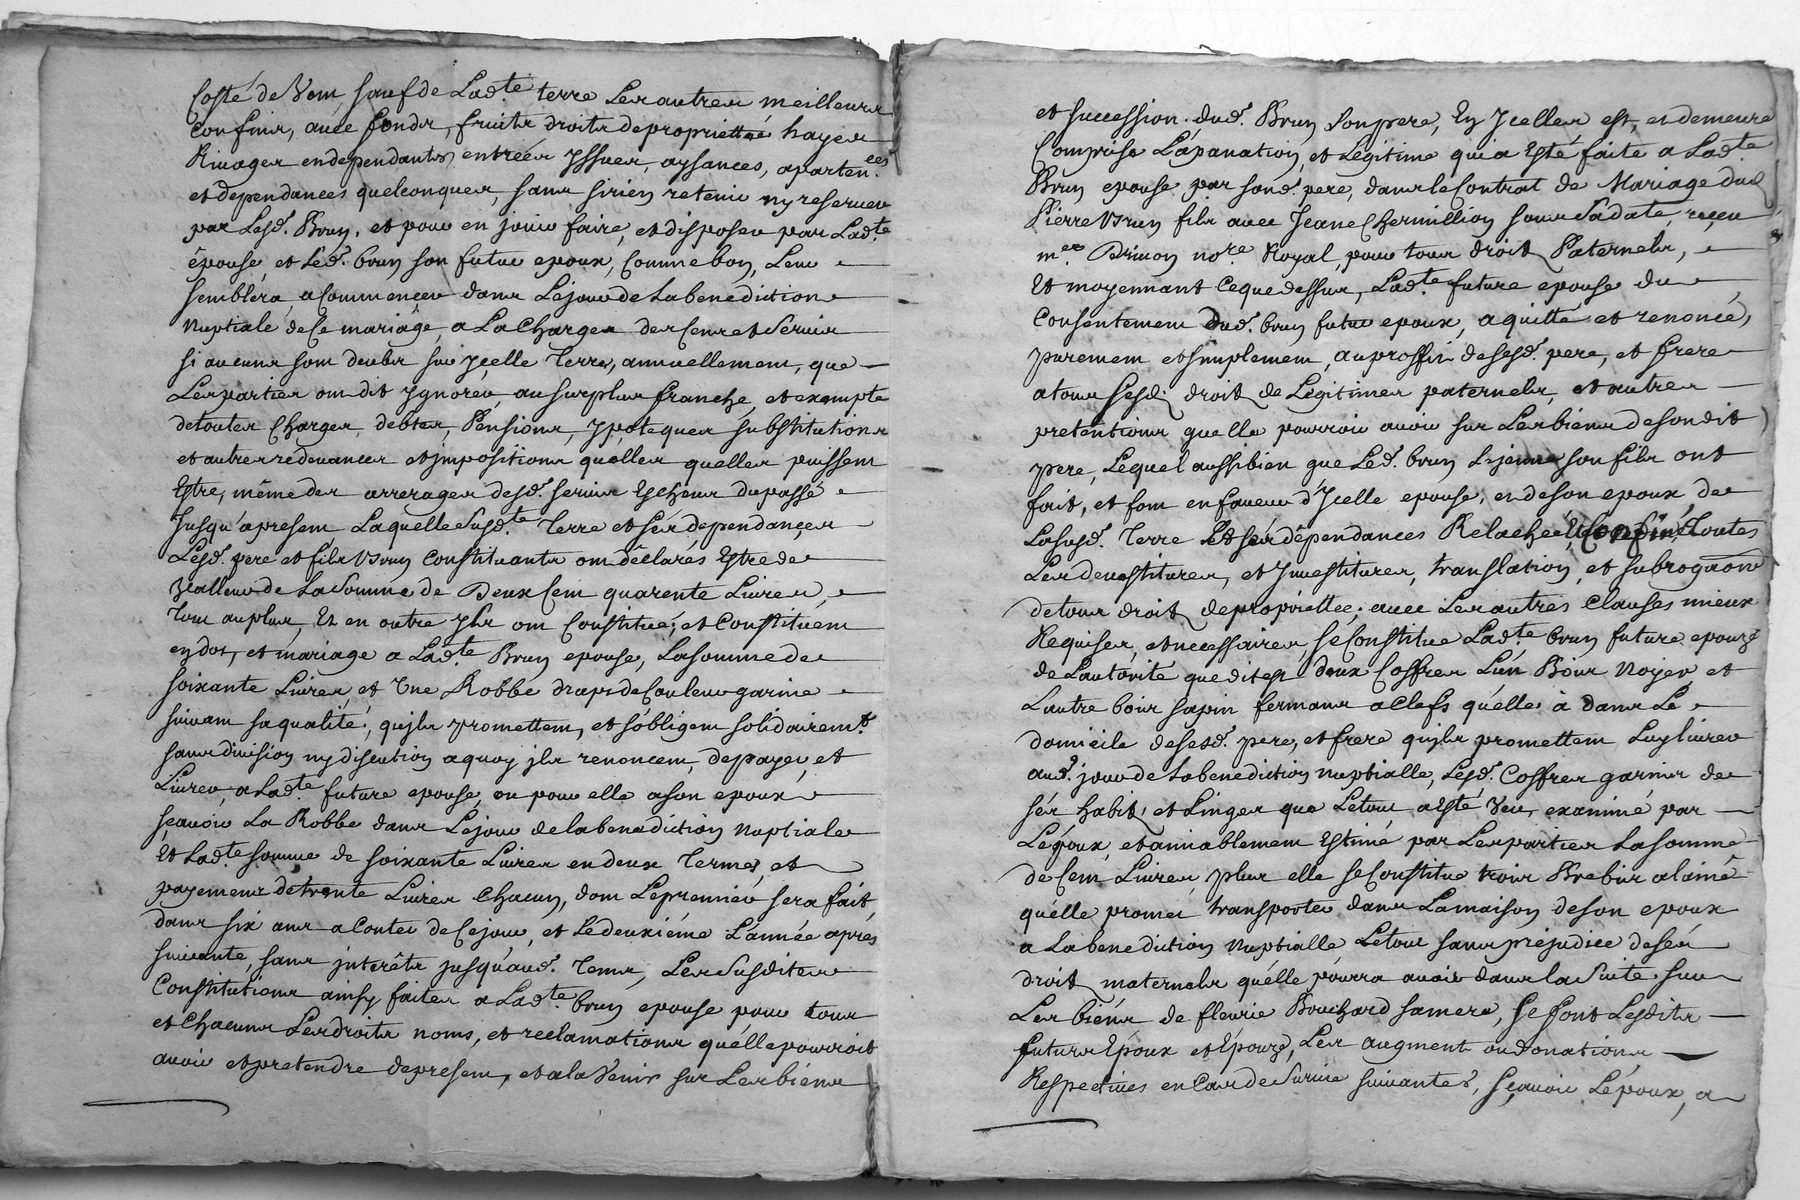 Costé de Vent, sauf de Lad.te terre Les autres meilleurs
Confins, avec fonds, fruits droits de proprietté hayes
Rivages en dependants, entrées Yssues, aysances, aparten.ces
et dependances quelconques, sans si rien retenir ny reserver
par Lesd. Brun, et pour en jouir faire, et disposer par Lad.te
épouse, et Led. brun son futur epoux, Comme bon, Leur
semblera, a Commencer dans Le jour de La benediction
Nuptiale de Ce mariage, a La Charge des Cens et Servis
si aucuns sont deubs sur ycelle Terre, annuellement, que
Les parties ont dit Ygnorer, au surplus franche, et exempte
de toutes Charges, debtes, Pensions, Ypoteques substitutions
et autres redevances et impositions quelles quelles puissent
Estre, même des arrerages desd. servis Escheus du passé
Jusqu'apresent Laquelle Susd.te Terre et Sés dependances
Lesd. pere et fils Brun Constituants ont déclarés Estre de
Valleur de La Somme de Deux Cent quarente Livres,
Tout au plus, Et en outre Yls ont Constitué, et Constituent
en dot, et mariage a Lad.te Brun epouse, La somme de
soixante Livres et Une Robbe draps de Couleur garnie
suivant sa qualité, qu'ils promettent, et s'obligent solidairem.t
sans division ny discution a quoy ils renoncent, de payer, et
Livrer, a Lad.te future epouse, ou pour elle a son epoux
sçavoir La Robbe dans Le jour de la benediction Nuptiale
Et Lad.te somme de soixante Livres en deux Termes, et
payements de trente Livres Chacun, dont Le premier sera fait,
dans six ans a Conter de Ce jour, et Le deuxiéme L'année apres
suivante, sans interêts jusqu'aud. Terme, Les Susdites
Constitutions ainsy faites a Lad.te brun epouse pour tous
et Chacuns Les droits noms, et reclamations qu'elle pourroit
avoir et pretendre de present, et a la Venir sur Les biens
et succession dud. Brun Son pere, En Ycelles est, et demeure
Comprise L'apanation, et Legitime qui a Esté faite a Lad.te
Brun epouse par sond. pere, dans le Contrat de Mariage dud.
Pierre Brun fils avec Jeane Chermillion sous Sa date, reçeu
m.e Brison no.re Royal, pour tous droits Paternels,
Et moyennant Ce que dessus, Lad.te future epouse du
Consentement dud. brun futur epoux, a quitté et renoncé,
purement et simplement, au proffit de sesd. pere, et frere
a tous sesd. droits de Legitimes paternels, et autres
pretentions quelle pourroit avoir sur Les biens de sondit
pere, Lequel aussi bien que Led. brun Le jeune son fils ont
fait, et font en faveur d'Ycelle epouse, et de son epoux de
La susd. Terre et sés dépendances Relachée, Confiné, Toutes
Les devestitures, et Ynvestitures, translation, et subrogaon
de tous droits de proprietté, avec Les autres Clauses mieux
Requises, et necessaires, se Constitue Lad.te brun future epouze
de L'autorité que dit est deux Coffres L'un Bois Noyer et
L'autre bois sapin fermans a Clefs qu'elle à dans Le
domicile desesd. pere, et frere qu'ils promettent Luy livrer
aud. jour de La benediction nuptialle, Lesd. Coffres garnis de
sés habits et Linges que Letout a Esté Veu, examiné par
L'époux, et amiablement Estimé par Les parties La somme
de Cent Livres, plus elle se Constitue trois Brebis a laine
qu'elle promet transporter dans La maison de son epoux
a La benediction Nuptialle Le tout sans préjudice de sés
droits maternels qu'elle pourra avoir dans la Suite sur
Les biens de fleurie Bouchard sa mere, Se font Lesdits
futurs Epoux et Epouze, Les augment ou donations
Respectives en Cas de Survie suivantes, sçavoir L'époux, a